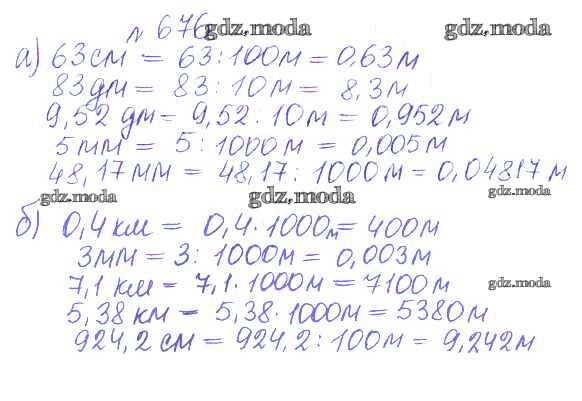 № 676 gdz.moda gdz.moda
а) 63см = 63:100м = 0,63м
83дм = 83:10м = 8,3м
9,52 дм = 9,52:10м = 0,952м
5мм = 5:1000м = 0,005м
48,17мм = 48,17:1000м = 0,04817м
gdz.moda gdz.moda gdz.moda
б) 0,4км = 0,4·1000м = 400м
3мм = 3:1000м = 0,003м
7,1 км = 7,1·1000м = 7100м gdz.moda
5,38 км = 5,38·1000м = 5380м
924,2 см = 924,2:100м = 9,242м